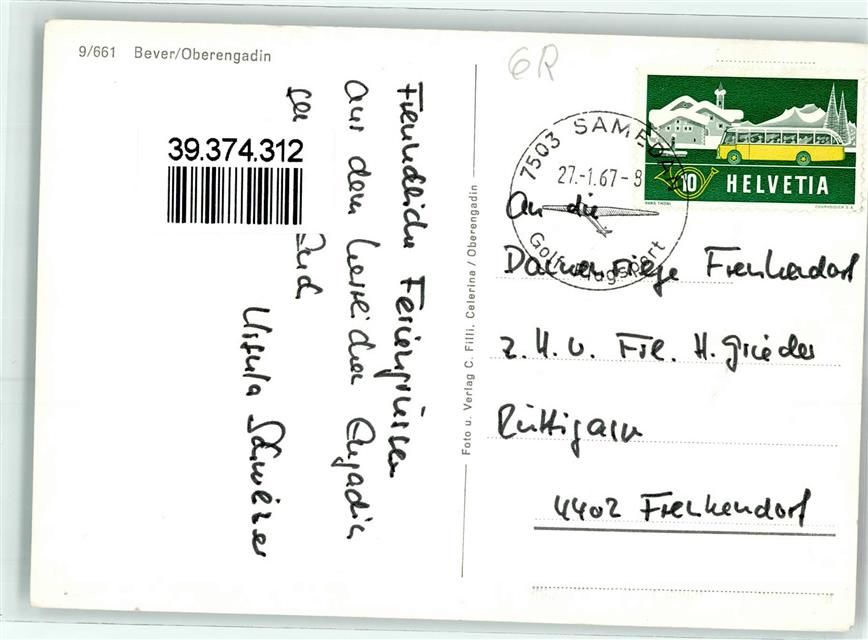 9/661 Bever/Oberengadin
39.374.312
Freundliche Feriengrüsse
aus dem herrlichen Engadin
Ursula Schweizer
Foto u. Verlag C. Filli, Celerina / Oberengadin
6R
7503 SAMEDAN
27.-1.67-8
Golf Flugsport
10 HELVETIA
An die
Damenriege Frenkendorf
z. H. v. Frl. H. Grieder
Rüttigasse
4402 Frenkendorf